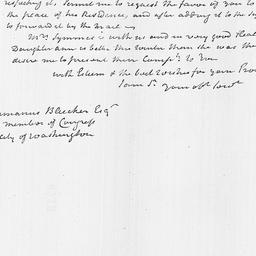 respecting it. Permit me to request the favor of you to
the place of his Residence, and after adding it to the
to forward it by the mail —
Mrs Symmes is with us and in very good Heal
Daughter Ann is better this Winter than she was the
desire me to present their Compts to You
with Esteem & the best Wishes for your
I am Sr your obt Servt
Harmanus Bleecker Esqr
member of Congress
City of Washington